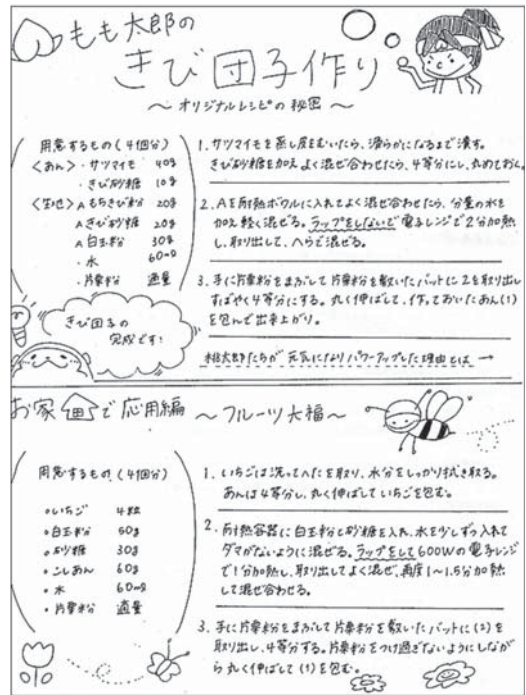 もも太郎の
きび団子作り
〜オリジナルレシピの秘密〜
用意するもの(4個分)
<あん>・サツマイモ 40g
・きび砂糖 10g
<生地>A もちきび粉 20g
A きび砂糖 20g
A 白玉粉 30g
・水 60ml
・片栗粉 適量
きび団子の
完成です!
1. サツマイモを蒸し皮をむいたら、滑らかになるまで潰す。
きび砂糖を加えよく混ぜ合わせたら、4等分にし、丸めておく。
2. Aを耐熱ボウルに入れてよく混ぜ合わせたら、分量の水を
加え軽く混ぜる。ラップをしないで電子レンジで2分加熱
し、取り出して、へらで混ぜる。
3. 手に片栗粉をまぶして片栗粉を敷いたバットに2を取り出し
すばやく4等分にする。丸く伸ばして、作っておいたあん(1)
を包んで出来上がり。
桃太郎たちが元気になりパワーアップした理由とは→
お家で応用編 〜フルーツ大福〜
用意するもの(4個分)
・いちご 4粒
・白玉粉 50g
・砂糖 30g
・こしあん 60g
・水 60ml
・片栗粉 適量
1. いちごは洗ってへたを取り、水分をしっかり拭き取る。
あんは4等分し、丸く伸ばしていちごを包む。
2. 耐熱容器に白玉粉と砂糖を入れ、水を少しずつ入れて
ダマがないように混ぜる。ラップをして600Wの電子レンジ
で1分加熱し、取り出してよく混ぜ、再度1〜1.5分加熱
して混ぜ合わせる。
3. 手に片栗粉をまぶして片栗粉を敷いたバットに(2)を
取り出し、4等分する。片栗粉をつけ過ぎないようにしなが
ら丸く伸ばして(1)を包む。